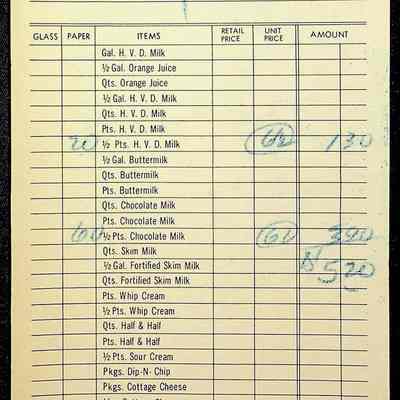 GLASS PAPER ITEMS RETAIL PRICE UNIT PRICE AMOUNT
Gal. H. V. D. Milk
½ Gal. Orange Juice
Qts. Orange Juice
½ Gal. H. V. D. Milk
Qts. H. V. D. Milk
Pts. H. V. D. Milk
20 ½ Pts. H. V. D. Milk 6½ 1 30
½ Gal. Buttermilk
Qts. Buttermilk
Pts. Buttermilk
Qts. Chocolate Milk
Pts. Chocolate Milk
60 ½ Pts. Chocolate Milk 6½ 3 90
Qts. Skim Milk
½ Gal. Fortified Skim Milk $5 20
Qts. Fortified Skim Milk
Pts. Whip Cream
½ Pts. Whip Cream
Qts. Half & Half
Pts. Half & Half
½ Pts. Sour Cream
Pkgs. Dip-N- Chip
Pkgs. Cottage Cheese